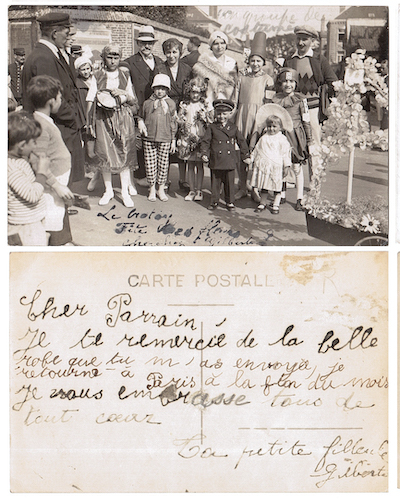 groupe des
Le Crotoy
Fête des
CARTE POSTALE
Cher Parrain,
Je te remercie de la belle
robe que tu m'as envoyé, je
retourne à Paris à la fin du mois
Je vous embrasse tous de
tout cœur
La petite filleule
Gilberte